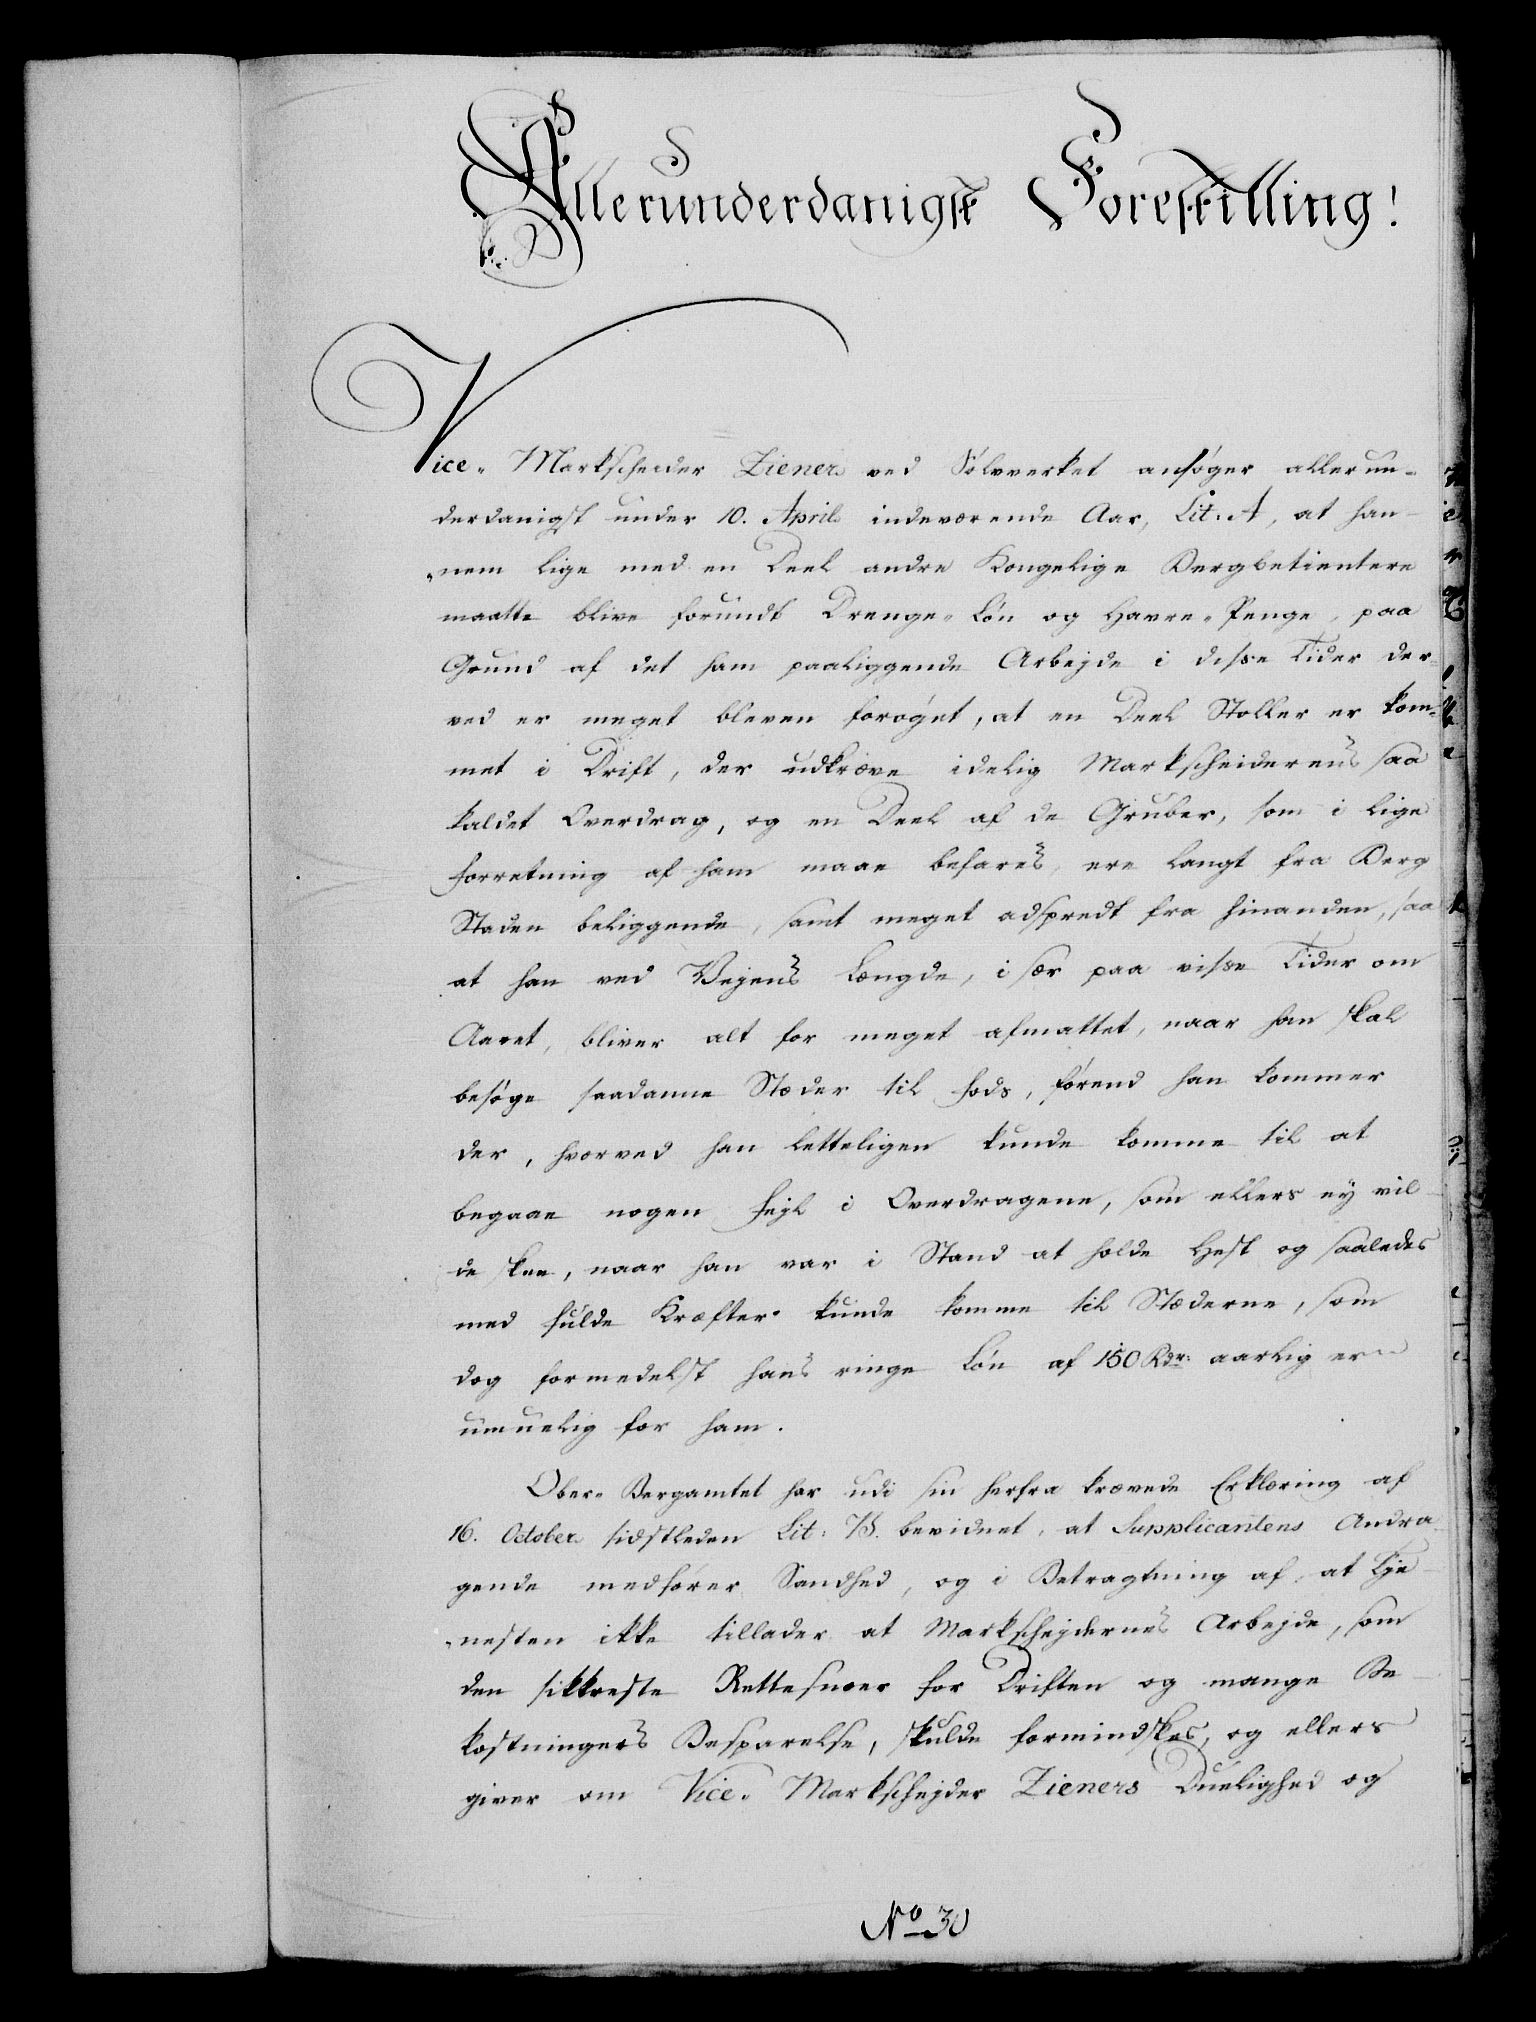 Allerunderdanigst Forestilling!
Vice- Markscheider Ziener ved Sølvverket ansøger allerun-
derdanigst under 10. April indeværende Aar, Lit. A, at han-
nem lige med en Deel andre Kongelige Bergbetientere
maatte blive forundt Drenge-Løn og Havre-Penge, paa
Grund af det ham paaliggende Arbejde i disse Tider der-
ved er meget bleven forøget, at en Deel Stoller er kom-
met i Drift, der udkræve idelig Markscheiderens saa
kaldet Overdrag, og en Deel af de Gruber, som i lige
Forretning af ham maae befares, ere langt fra Berg
Staden beliggende, samt meget adspredt fra hinanden, saa
at han ved Vejens Længde, i sær paa visse Tider om
Aaret, bliver alt for meget afmattet, naar han skal
besøge saadanne Stæder til Fods, førend han kommer
der, hvorved han letteligen kunde komme til at
begaae nogen Fejl i Overdragene, som ellers ey vil-
de skee, naar han var i Stand at holde Hest og saaledes
med fulde Kræfter kunde komme til Stæderne, som
dog formedelst hans ringe Løn af 150 Rdr. aarlig er
umuelig for ham.
Ober- Bergamtet har udi sin herfra krævede Erklæring af
16. October sidstleden Lit: B. bevidnet, at Supplicantens Andra-
gende medfører Sandhed, og i Betragtning af, at Tje-
nesten ikke tillader at Markschejdernes Arbejde, som
den sikkreste Rettesnoer for Driften og mange Be-
kostningers Besparelse, skulde formindskes, og ellers
giver om Vice- Markschejder Zieners Duelighed og
No 30